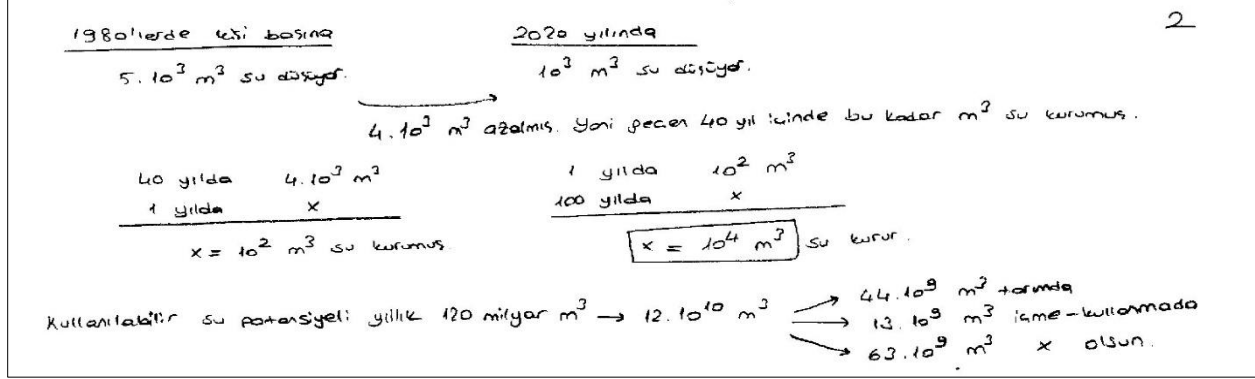 2
1980'lerde kişi başına
5.10³ m³ su düşüyor.
2020 yılında
10³ m³ su düşüyor.
4.10³ m³ azalmış. Yani geçen 40 yıl içinde bu kadar m³ su kurumuş.
40 yılda 4.10³ m³
1 yılda x
x = 10² m³ su kurumuş.
1 yılda 10² m³
100 yılda x
x = 10⁴ m³ su kurur.
Kullanılabilir su potansiyeli yıllık 120 milyar m³ → 12.10¹⁰ m³
→ 44.10⁹ m³ tarımda
→ 13.10⁹ m³ içme-kullanmada
→ 63.10⁹ m³ x olsun.